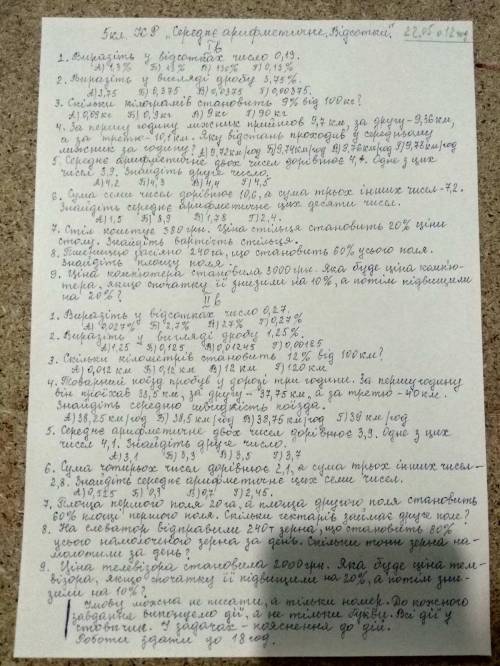 5 кл. КР "Середнє арифметичне. Відсотки". 22.05 о 12 год
І в
1. Виразіть у відсотках число 0,19.
А) 1,3% Б) 19% В) 190% Г) 0,19%
2. Виразіть у вигляді дробу 3,75%.
А) 3,75 Б) 0,375 В) 0,0375 Г) 0,00375.
3. Скільки кілограмів становить 9% від 100 кг?
А) 0,09 кг Б) 0,9 кг В) 9 кг Г) 90 кг
4. За першу годину лижник пройшов 9,7 км, за другу - 9,36 км,
а за третю - 10,1 км. Яку відстань проходив у середньому
лижник за годину? А) 9,72 км/год Б) 9,74 км/год В) 9,76 км/год Г) 9,78 км/год
5. Середнє арифметичне двох чисел дорівнює 4,1. Одне з цих
чисел 3,9. Знайдіть друге число.
А) 4,2 Б) 4,3 В) 4,4 Г) 4,5
6. Сума семи чисел дорівнює 10,6, а сума трьох інших чисел - 7,2.
Знайдіть середнє арифметичне цих десяти чисел.
А) 1,5 Б) 8,9 В) 1,78 Г) 2,4.
7. Стіл коштує 380 грн. Ціна стільця становить 20% ціни
столу. Знайдіть вартість стільця.
8. Пшеницею засіяно 240 га, що становить 60% усього поля.
Знайдіть площу поля.
9. Ціна комп'ютера становила 3000 грн. Яка буде ціна комп'ю-
тера, якщо спочатку її знизили на 10%, а потім підвищили
на 20%?
ІІ в
1. Виразіть у відсотках число 0,27.
А) 0,027% Б) 2,7% В) 27% Г) 0,27%
2. Виразіть у вигляді дробу 1,25%.
А) 1,25 Б) 0,125 В) 0,0125 Г) 0,00125
3. Скільки кілометрів становить 12% від 100 км?
А) 0,012 км Б) 0,12 км В) 12 км Г) 120 км
4. Товарний поїзд пробув у дорозі три години. За першу годину
він проїхав 38,5 км, за другу - 37,75 км, а за третю - 40 км.
Знайдіть середню швидкість поїзда.
А) 38,25 км/год Б) 38,5 км/год В) 38,75 км/год Г) 39 км/год
5. Середнє арифметичне двох чисел дорівнює 3,9. Одне з цих
чисел 4,1. Знайдіть друге число.
А) 3,1 Б) 3,3 В) 3,5 Г) 3,7
6. Сума чотирьох чисел дорівнює 2,1, а сума трьох інших чисел -
2,8. Знайдіть середнє арифметичне цих семи чисел.
А) 0,525 Б) 0,9 В) 0,7 Г) 2,45.
7. Площа першого поля 20 га, а площа другого поля становить
60% площі першого поля. Скільки гектарів займає друге поле?
8. На елеватор відправили 240 т зерна, що становить 80%
усього намолоченого зерна за день. Скільки тонн зерна на-
молотили за день?
9. Ціна телевізора становила 2000 грн. Яка буде ціна теле-
візора, якщо спочатку її підвищили на 20%, а потім зни-
зили на 10%?
Умову можна не писати, а тільки номер. До кожного
завдання виписуємо дії, а не тільки букву. Всі дії у
стовпчик. У задачах - пояснення до дій.
Роботи здати до 18 год.